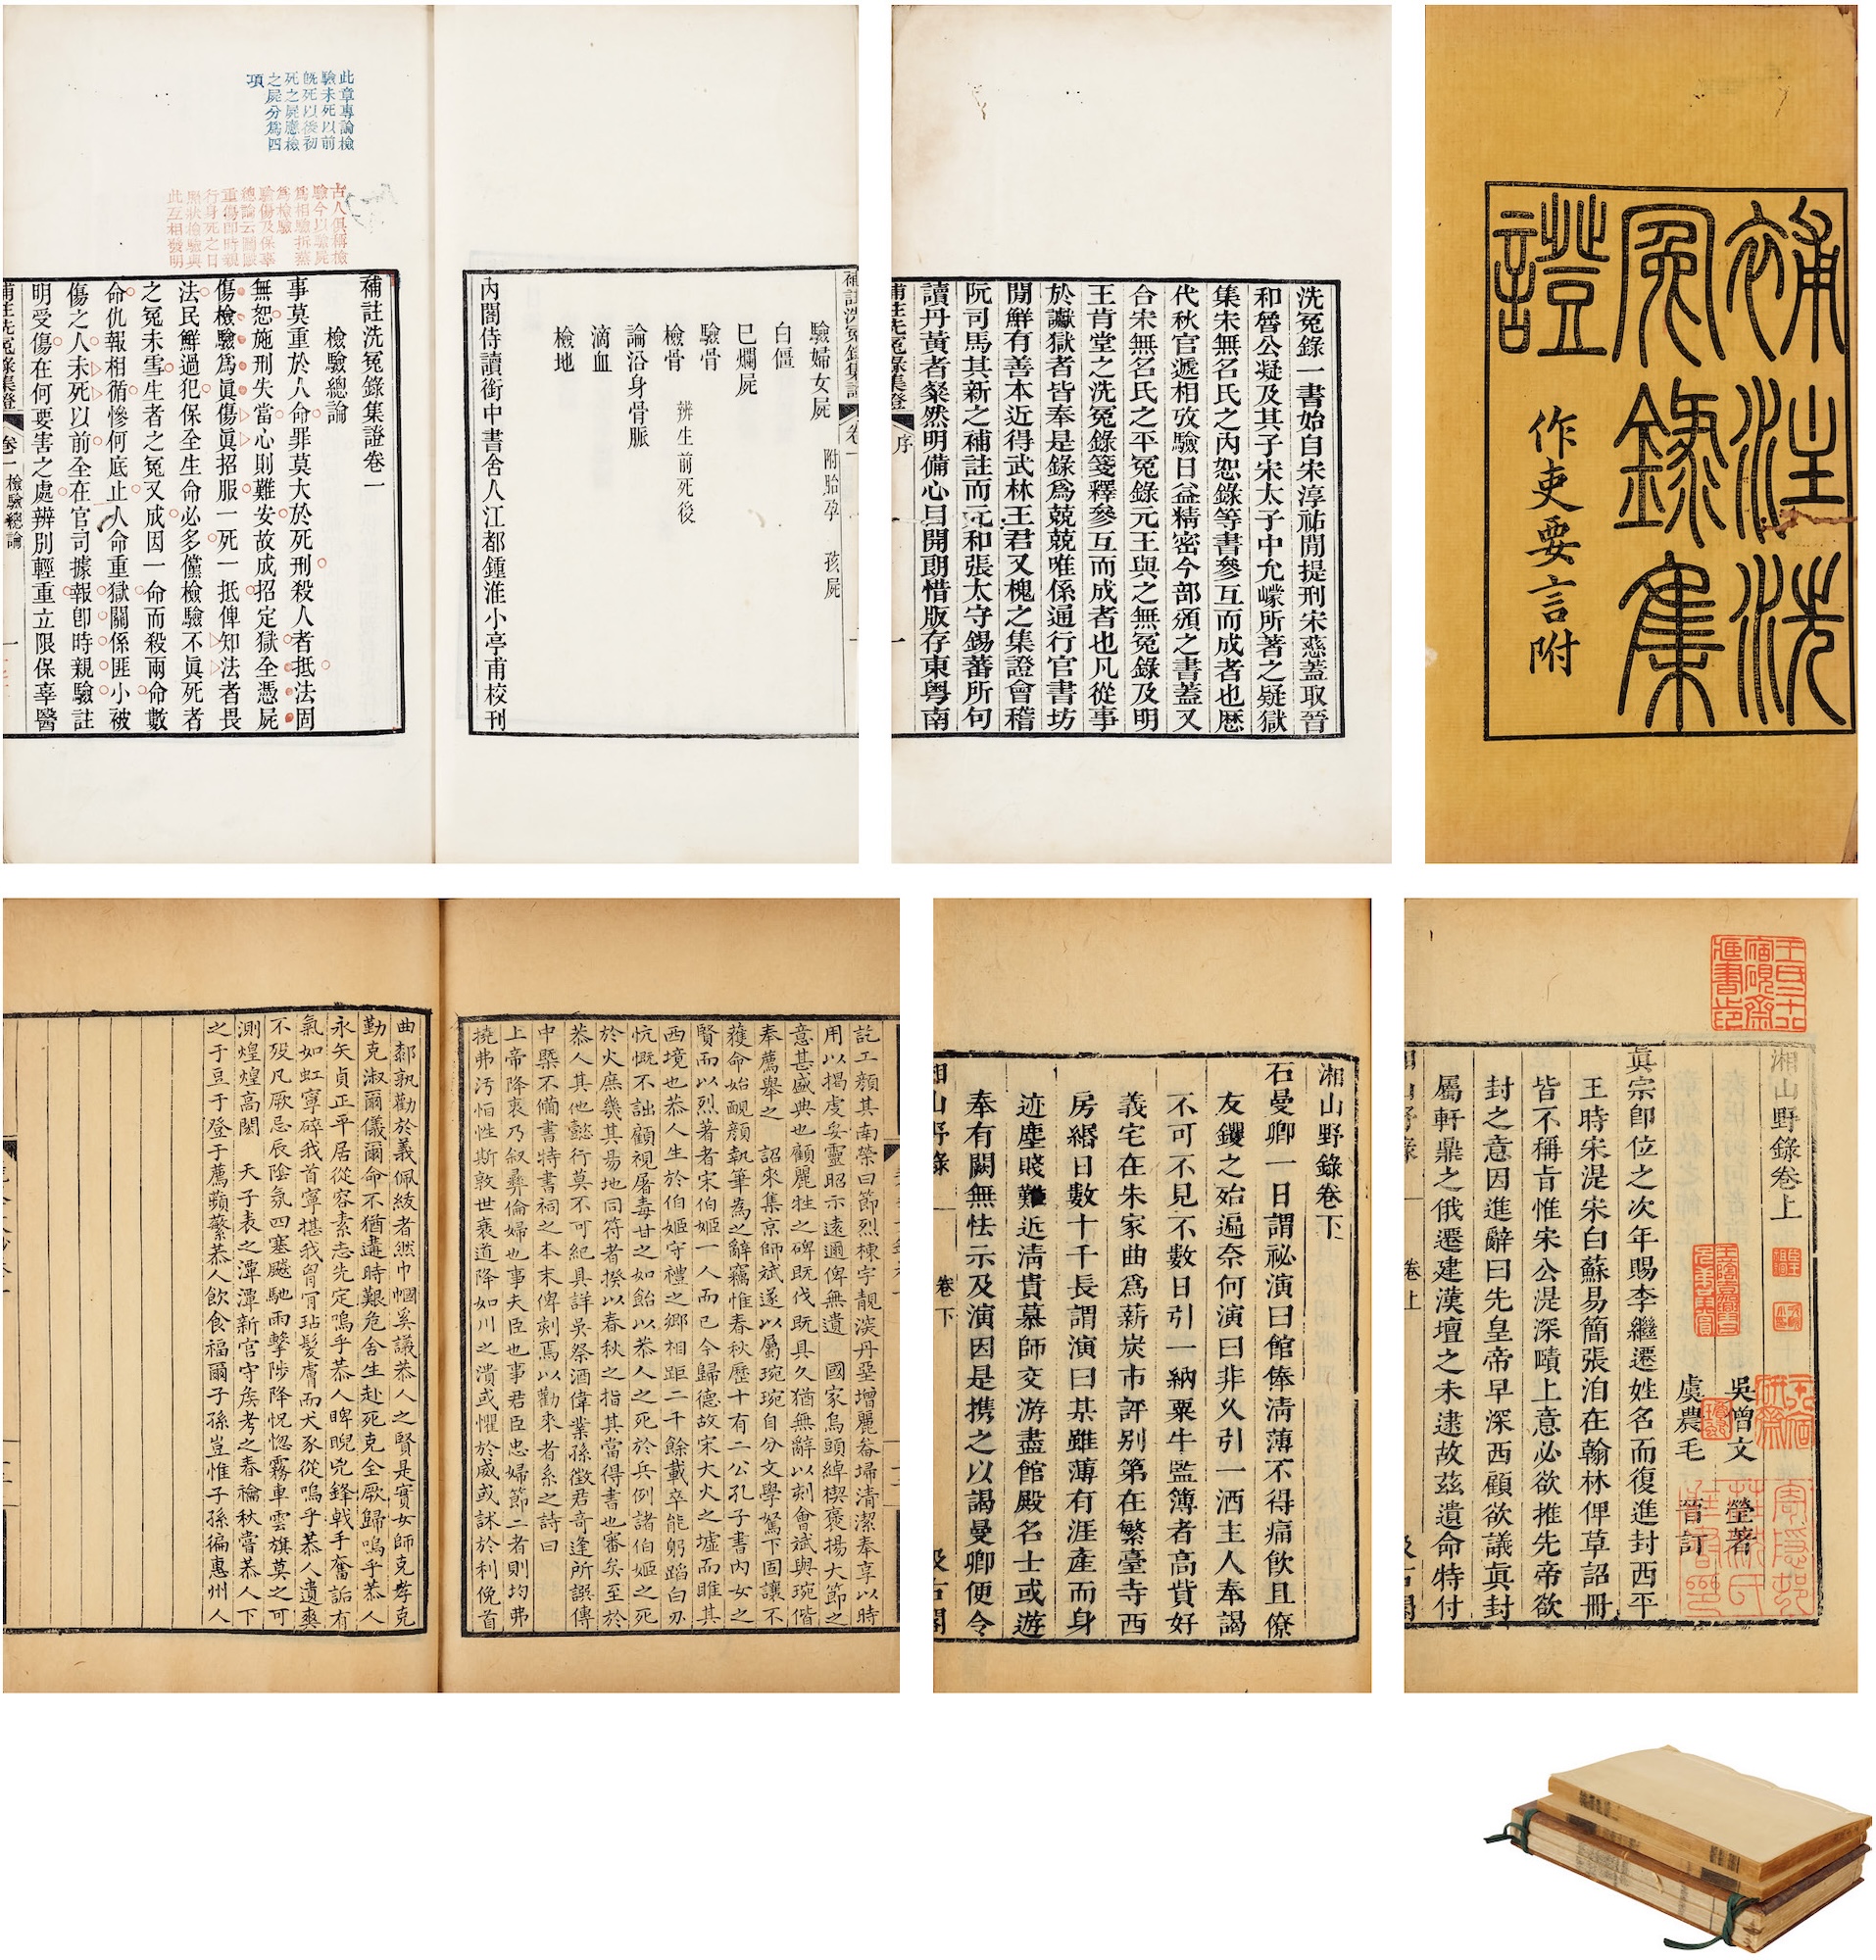 補注洗
冤錄集
證
作吏要言附
洗冤錄一書始自宋淳祐間提刑宋慈蓋取晉
和魯公凝及其子宋太子中允㠓所著之疑獄
集宋無名氏之內恕錄等書參互而成者也歷
代秋官遞相攷驗日益精密今部頒之書蓋又
合宋無名氏之平冤錄元王與之無冤錄及明
王肯堂之洗冤錄箋釋參互而成者也凡從事
於讞獄者皆奉是錄爲兢兢唯係通行官書坊
間鮮有善本近得武林王君又槐之集證會稽
阮司馬其新之補註而元和張太守錫蕃所句
讀丹黃者粲然明備心目開朗惜版存東粵南
補註洗冤錄集證
序
一
補註洗冤錄集證
卷一
驗婦女屍 附胎孕 孩屍
白僵
已爛屍
驗骨
檢骨 辨生前死後
論沿身骨脈
滴血
檢地
內閣侍讀銜中書舍人江都鍾淮小亭甫校刊
此章專論檢
驗未死以前
既死以後初
死之屍應檢
之屍分爲四
項
古人俱稱檢
驗今以驗屍
爲相驗拆蒸
爲檢驗
驗傷及保辜
總論云鬬毆
重傷即時親
行身死之日
照狀檢驗與
此互相發明
補註洗冤錄集證卷一
檢驗總論
事莫重於人命罪莫大於死刑殺人者抵法固
無恕施刑失當心則難安故成招定獄全憑屍
傷檢驗爲眞傷眞招服一死一抵俾知法者畏
法民鮮過犯保全生命必多儻檢驗不眞死者
之冤未雪生者之冤又成因一命而殺兩命數
命仇報相循慘何底止人命重獄關係匪小被
傷之人未死以前全在官司據報即時親驗註
明受傷在何要害之處辨別輕重立限保辜醫
補註洗冤錄集證
卷一 檢驗總論
一
湘山野錄卷上
吳僧文 瑩著
虞農毛 晉訂
眞宗卽位之次年賜李繼遷姓名而復進封西平
王時宋湜宋白蘇易簡張洎在翰林俾草詔冊
皆不稱旨惟宋公湜深賾上意必欲推先帝欲
封之意因進辭曰先皇帝早深西顧欲議眞封
屬軒鼎之俄遷建漢壇之未逮故茲遺命特付
卷上
湘山野錄卷下
石曼卿一日謂祕演曰館俸清薄不得痛飲且僚
友鑺之殆遍奈何演曰非久引一酒主人奉謁
不可不見不數日引一納粟牛監簿者高貲好
義宅在朱家曲爲薪炭市評別第在繁臺寺西
房緡日數十千長謂演曰某雖薄有涯產而身
迹塵賤難近淸貴慕師交游盡館殿名士或遊
奉有闕無怯示及演因是携之以謁曼卿便令
湘山野錄
卷下
汲古閣
訖工顏其南榮曰節烈棟宇靚淡丹堊增麗畚埽清潔奉享以時
用以揭虔妥靈昭示遠邇俾無遺 國家烏頭綽楔褒揚大節之
意甚盛典也顧麗牲之碑既伐既具久猶無辭以刻會斌與琬偕
奉薦舉之 詔來集京師斌遂以屬琬琬自分文學駑下固讓不
獲命始靦顏執筆為之辭竊惟春秋歷十有二公孔子書內女之
賢而以烈著者宋伯姬一人而已今歸德故宋大火之墟而睢其
西境也恭人生於伯姬守禮之鄉相距二千餘載卒能躬蹈白刃
忼慨不詘顧視屠毒甘之如飴以恭人之死於兵例諸伯姬之死
於火庶幾其易地同符者揆以春秋之指其當得書也審矣至於
恭人其他懿行莫不可紀具詳吳祭酒偉業孫徵君奇逢所譔傳
中槩不備書特書祠之本末俾刻焉以勸來者系之詩曰
上帝降衷乃叙彝倫婦也事夫臣也事君臣忠婦節二者則均弗
撓弗污恒性斯敦世衰道降如川之潰或懼於威或訹於利俛首
曲鄰孰勸於義佩紱者然巾幗奚議恭人之賢是賓女師克孝克
勤克淑爾儀爾命不猶遘時艱危舍生赴死克全厥歸嗚乎恭人
永矢貞正平居從容素志先定嗚乎恭人睥睨兇鋒戟手奮詬有
氣如虹寧碎我首寧堪我胷肎玷髮膚而犬豕從嗚乎恭人遺爽
不歿凡厥忌辰陰氛四塞颷馳雨擊陟降怳惚霧車雲旗莫之可
測煌煌高閎 天子表之潭潭新宮守矦考之春禴秋嘗恭人下
之于豆于登于薦蘋蘩恭人飲食福爾子孫豈惟子孫徧惠州人